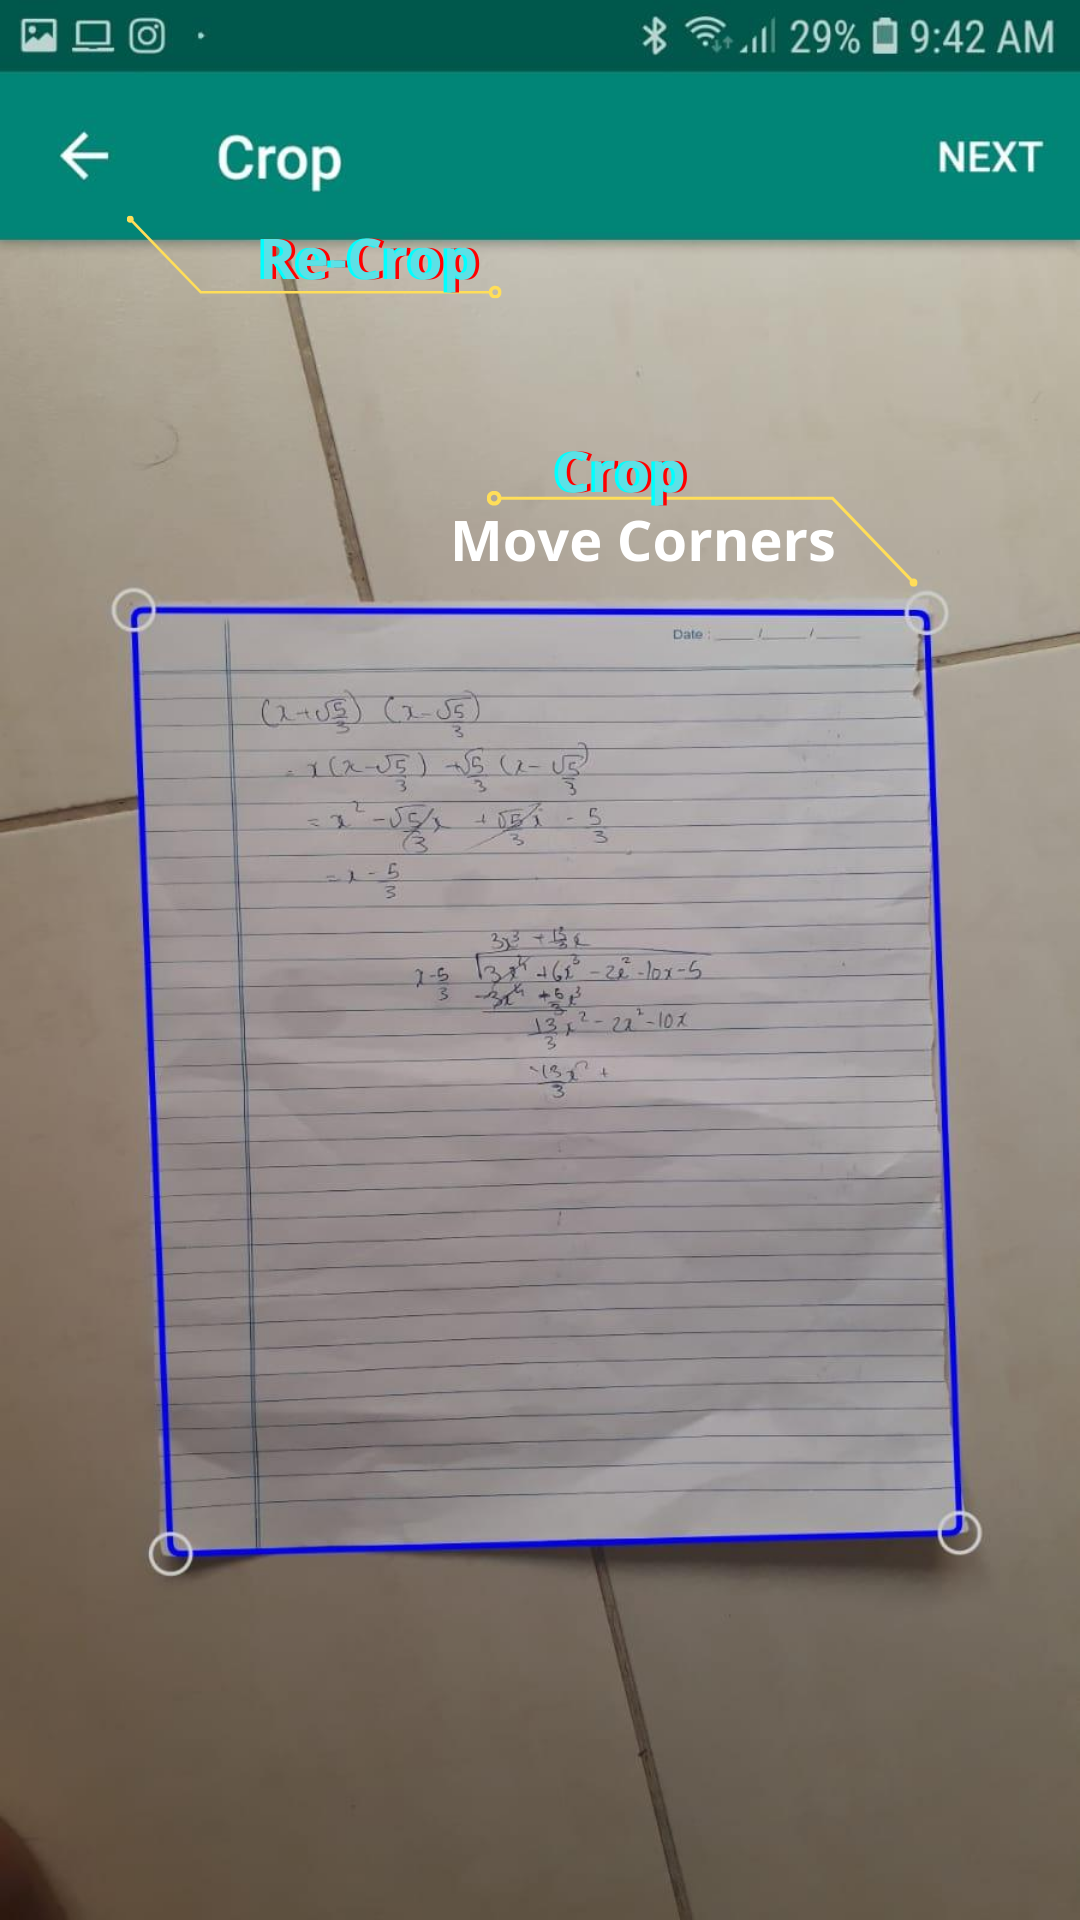 29% 9:42 AM
Crop NEXT
Re-Crop
Crop
Move Corners
Date : ____ /____ /____
(x+√5/3) (x-√5/3)
= x(x-√5/3) +√5/3 (x-√5/3)
= x² -√5/3 x +√5/3 x - 5/3
= x - 5/3
3x³ + 13/3 x
x-5/3 3x⁴ +6x³ -2x² -10x-5
-3x⁴ +5/3 x³
13/3 x² - 2x² -10x
-13x² +
3